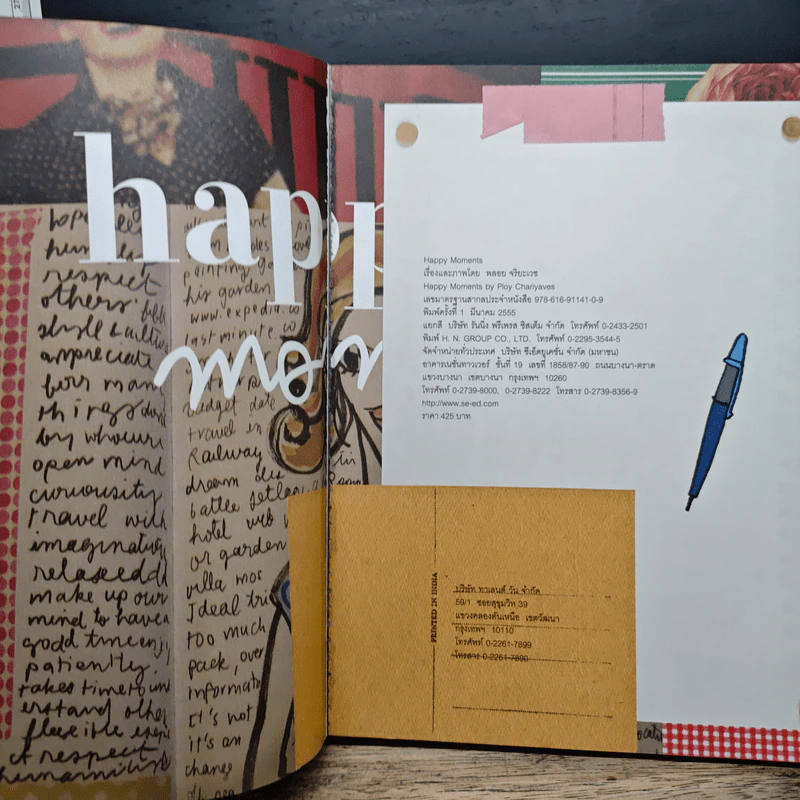 happ
mon
respect
others
appreciate
four man
things
by whoever
open mind
curuousity
travel with
imaginatu
relaseedd
make up our
mind to have a
godd time enj
patiently.
takes time to un
erstand other
flexible
respect
painting ga
his garden
www.expedia.co
last minute.co
budget date
travel in
Railway
dream des
battee setlag
hotel web
or garden
villa mos
Ideal tri
too much
pack, over
informati
It's not
it's an
change
Happy Moments
เรื่องและภาพโดย พลอย จริยะเวช
Happy Moments by Ploy Chariyaves
เลขมาตรฐานสากลประจำหนังสือ 978-616-91141-0-9
พิมพ์ครั้งที่ 1 มีนาคม 2555
แยกสี บริษัท รันนิ่ง พรีเพรส ซิสเต็ม จำกัด โทรศัพท์ 0-2433-2501
พิมพ์ H. N. GROUP CO., LTD. โทรศัพท์ 0-2295-3544-5
จัดจำหน่ายทั่วประเทศ บริษัท ซีเอ็ดยูเคชั่น จำกัด (มหาชน)
อาคารเนชั่นทาวเวอร์ ชั้นที่ 19 เลขที่ 1858/87-90 ถนนบางนา-ตราด
แขวงบางนา เขตบางนา กรุงเทพฯ 10260
โทรศัพท์ 0-2739-8000, 0-2739-8222 โทรสาร 0-2739-8356-9
http://www.se-ed.com
ราคา 425 บาท
PRINTED IN INDIA
บริษัท ทาเลนต์ วัน จำกัด
59/1 ซอยสุขุมวิท 39
แขวงคลองตันเหนือ เขตวัฒนา
กรุงเทพฯ 10110
โทรศัพท์ 0-2261-7899
โทรสาร 0-2261-7890